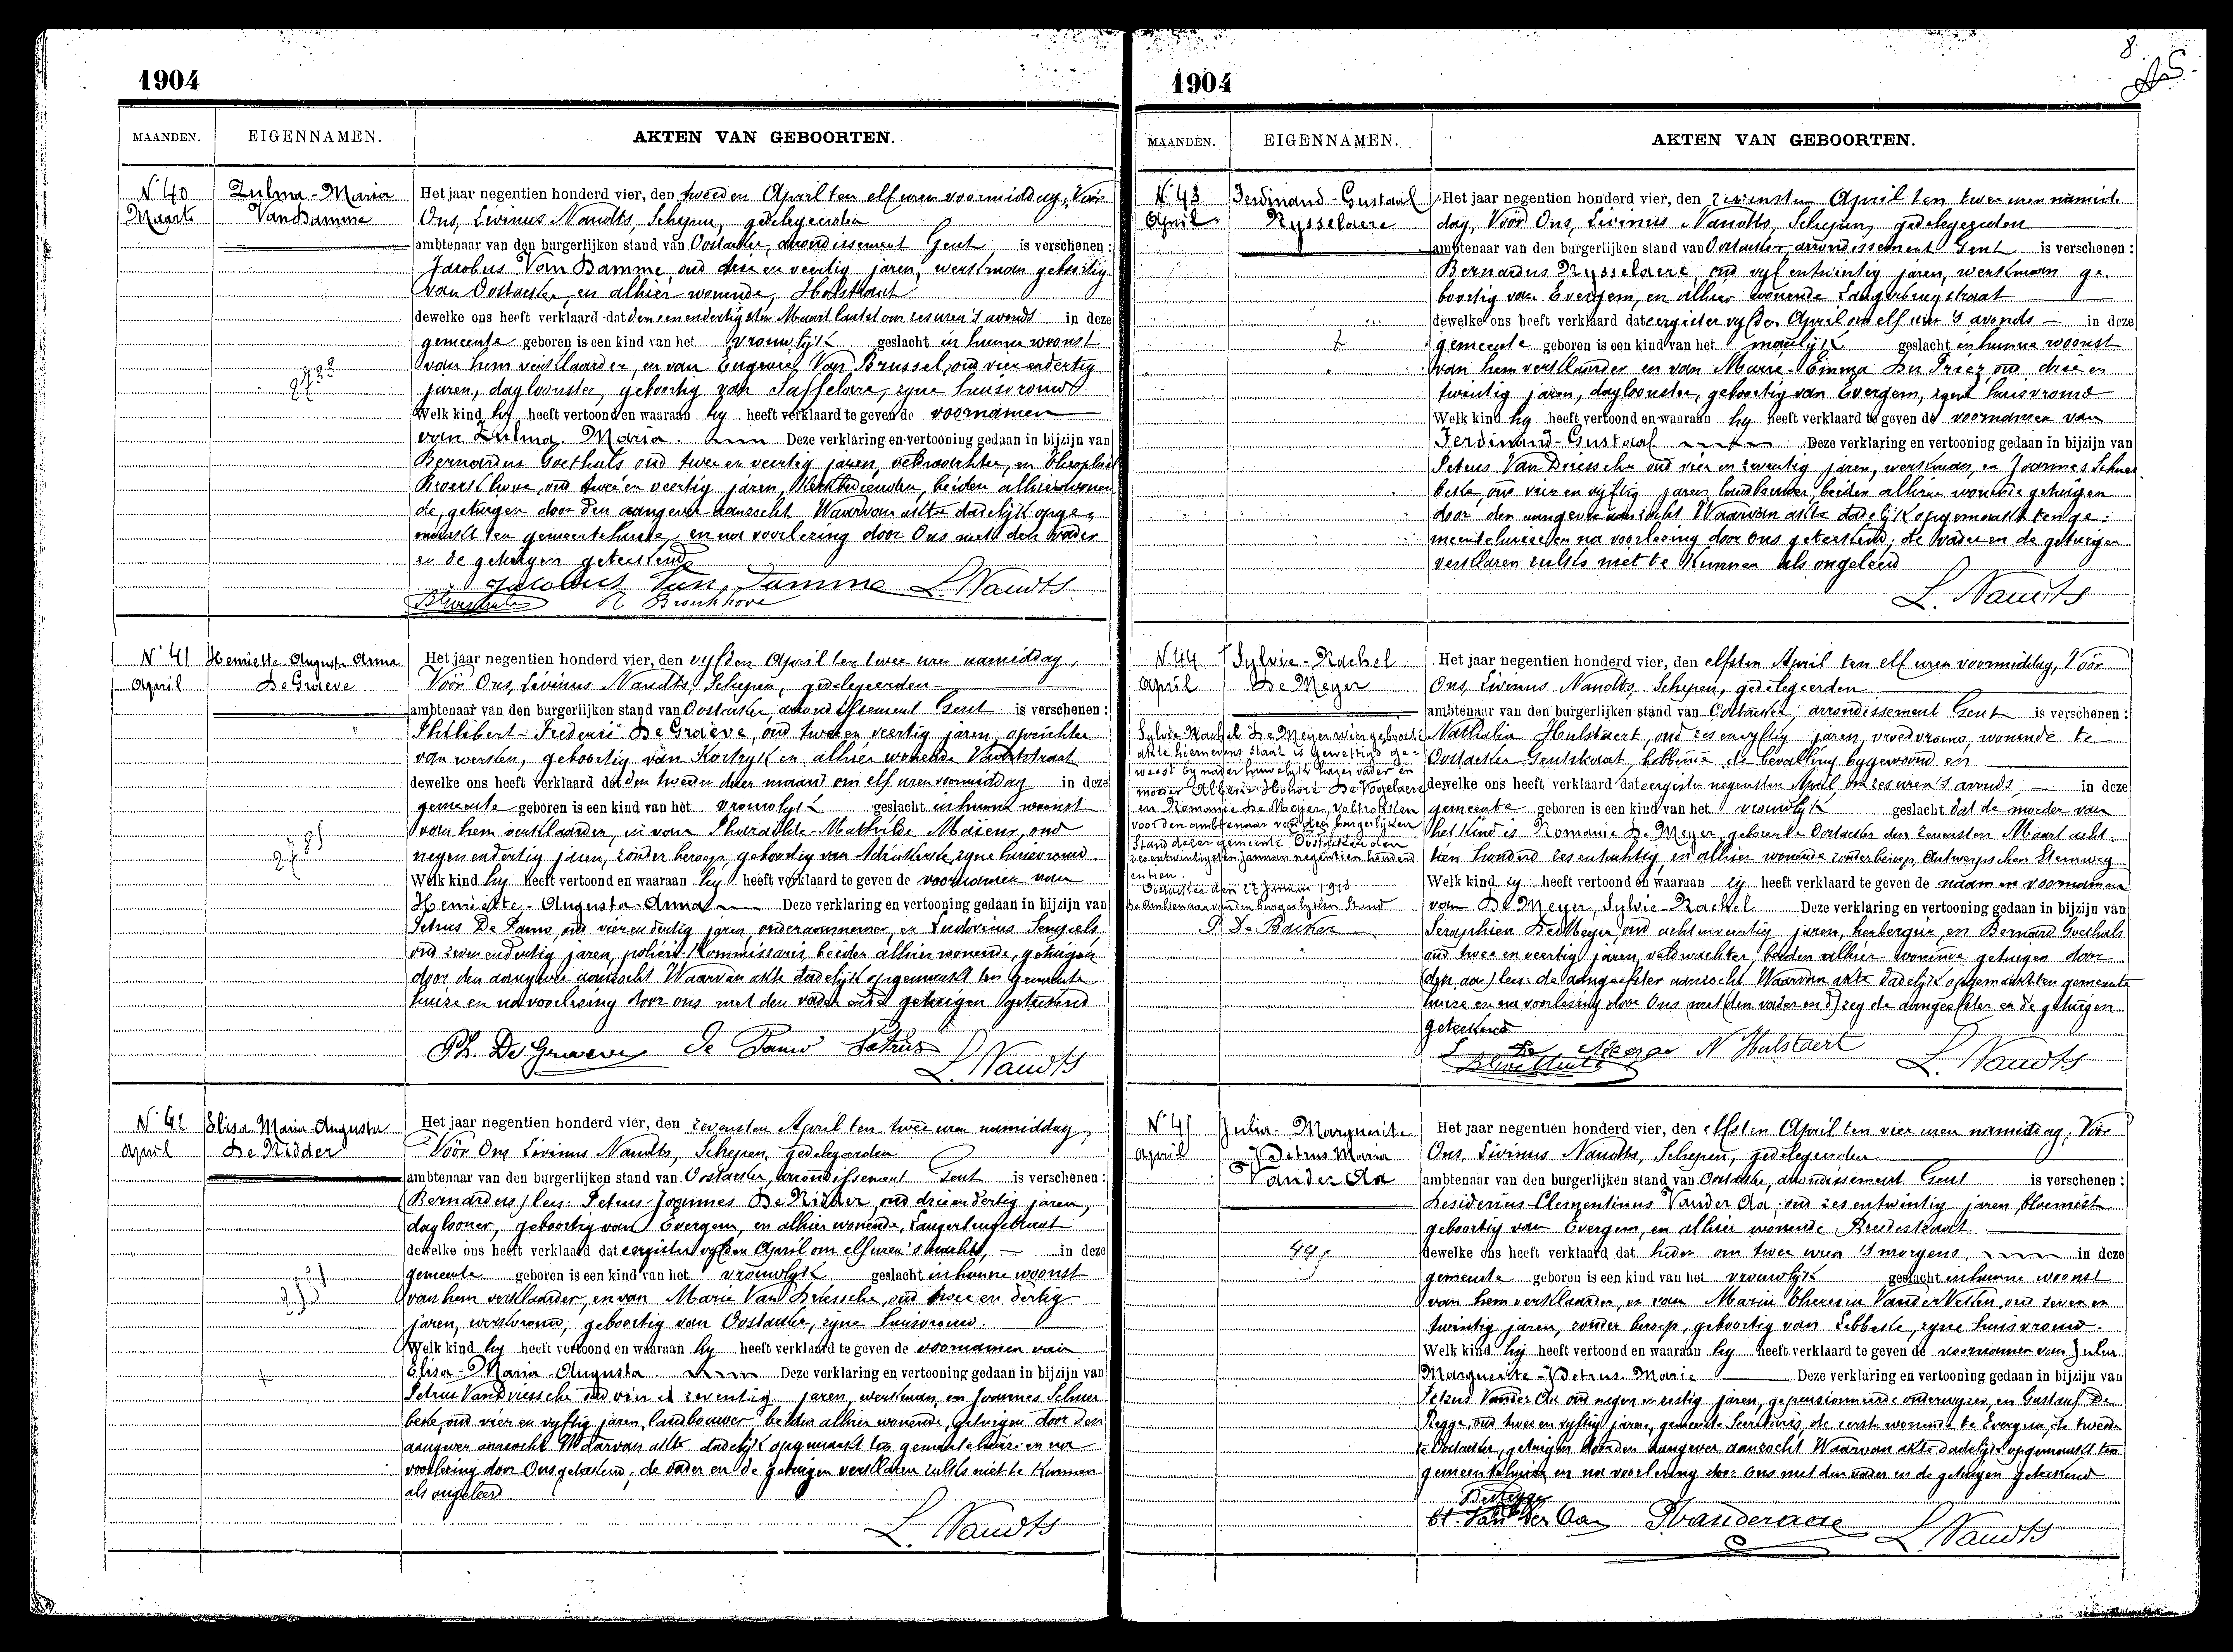 1904
MAANDEN. EIGENNAMEN. AKTEN VAN GEBOORTEN.
N° 40 Zulma-Maria
Maart Van Damme
Het jaar negentien honderd vier, den tweeden April ten elf uren voormiddag, Vóór
Ons, Livinus Naudts, Schepen, gedelegeerden
ambtenaar van den burgerlijken stand van Oostacker, arrondissement Gent is verschenen :
Jacobus Van Damme, oud drie en veertig jaren, werkman geboortig
van Oostacker, en alhier wonende, Holstraat
dewelke ons heeft verklaard dat den een en dertigsten Maart laatst om zes uren 's avonds in deze
gemeente geboren is een kind van het vrouwlijk geslacht in hunne woonst
van hem verklaarder, en van Eugenie Van Brussel, oud vier en dertig
jaren, dagloonster, geboortig van Saffelare, zyne huisvrouw
Welk kind hy heeft vertoond en waaraan hy heeft verklaard te geven de voornamen
van Zulma-Maria. Deze verklaring en vertooning gedaan in bijzijn van
Bernardus Goethals oud twee en veertig jaren, veldwachter, en Theophiel
oud twee en veertig jaren, beiden alhier wonen
de, getuigen door den aangever aanzocht Waarvan akte dadelijk opge-
maakt ten gemeentehuize, en na voorlezing door Ons met den vader
en de getuigen geteekend
Jacobus Van Damme L. Naudts
N° 41 Henriette-Augusta Anna
April De Graeve
Het jaar negentien honderd vier, den vyfden April ten twee uren namiddag,
Vóór Ons, Livinus Naudts, Schepen, gedelegeerden
ambtenaar van den burgerlijken stand van Oostacker, arrondissement Gent is verschenen :
Philibert-Frederic De Graeve, oud twee en veertig jaren, opzichter
van werken, geboortig van Kortryk en alhier wonende
dewelke ons heeft verklaard dat den tweeden dezer maand om elf uren voormiddag in deze
gemeente geboren is een kind van het vrouwlyk geslacht in hunne woonst
van hem verklaarder, en van Mathilde oud
negen en dertig jaren, zonder beroep, geboortig van zyne huisvrouw.
Welk kind hy heeft vertoond en waaraan hy heeft verklaard te geven de voornamen van
Henriette-Augusta-Anna Deze verklaring en vertooning gedaan in bijzijn van
Petrus De Pauw, oud vier en dertig jaren, onderaannemer, en Ludovicus
oud zeven en dertig jaren, policie-Kommissaris, beiden alhier wonende, getuigen
door den aangever aanzocht Waarvan akte dadelijk opgemaakt ten gemeente
huize en na voorlezing door ons met den vader en de getuigen geteekend
Ph. De Graeve De Pauw Petrus
L. Naudts
N° 42 Elisa-Maria-Augusta
April De Ridder
Het jaar negentien honderd vier, den zevensten April ten twee uren namiddag,
Vóór Ons Livinus Naudts, Schepen, gedelegeerden
ambtenaar van den burgerlijken stand van Oostacker, arrondissement Gent is verschenen :
(Bernardus) lees: Petrus-Joannes De Ridder, oud drie en dertig jaren,
daglooner, geboortig van Evergem, en alhier wonende,
dewelke ons heeft verklaard dat eergister vyfden April om elf uren 's nachts, in deze
gemeente geboren is een kind van het vrouwlyk geslacht in hunne woonst
van hem verklaarder, en van Marie Van Driessche, oud twee en dertig
jaren, werkvrouw, geboortig van Oostacker, zyne huisvrouw.
Welk kind hy heeft vertoond en waaraan hy heeft verklaard te geven de voornamen van
Elisa-Maria-Augusta Deze verklaring en vertooning gedaan in bijzijn van
Petrus Van Driessche oud vier en zeventig jaren, werkman, en Joannes
oud vier en vyftig jaren, landbouwer beiden alhier wonende, getuigen door den
aangever aanzocht Waarvan akte dadelijk opgemaakt ten gemeentehuize en na
voorlezing door Ons geteekend, de vader en de getuigen verklaren zulks niet te kunnen
als ongeleerd
L. Naudts
8
1904
MAANDEN. EIGENNAMEN. AKTEN VAN GEBOORTEN.
N° 43 Ferdinand-Gustaaf
April Rysselaere
Het jaar negentien honderd vier, den zevensten April ten twee uren namid-
dag, Vóór Ons, Livinus Naudts, Schepen, gedelegeerden
ambtenaar van den burgerlijken stand van Oostacker arrondissement Gent is verschenen :
Bernardus Rysselaere, oud vyf en twintig jaren, werkman ge-
boortig van Evergem, en alhier wonende
dewelke ons heeft verklaard dat eergister vyfden April om elf uren 's avonds in deze
gemeente geboren is een kind van het manlyk geslacht en hunne woonst
van hem verklaarder en van Marie-Emma oud drie en
twintig jaren, dagloonster, geboortig van Evergem, zyne huisvrouw
Welk kind hy heeft vertoond en waaraan hy heeft verklaard te geven de voornamen van
Ferdinand-Gustaaf Deze verklaring en vertooning gedaan in bijzijn van
Petrus Van Driessche oud vier en zeventig jaren, werkman, en Joannes
oud vier en vyftig jaren landbouwer, beiden alhier wonende getuigen
door den aangever aanzocht Waarvan akte dadelijk opgemaakt ten ge-
meentehuize en na voorlezing door Ons geteekend; de vader en de getuigen
verklaren zulks niet te kunnen als ongeleerd
L. Naudts
N° 44 Sylvie-Rachel
April De Meyer
Sylvie-Rachel De Meyer wier geboorte
akte hiernevens staat is gewettigd ge-
weest by nader huwelijk harer vader en
moeder Honoré De Vogelaere
en Romanie De Meyer, voltrokken
voor den ambtenaar van den burgerlijken
stand dezer gemeente Oostacker den
zes en twintigsten Januari negentien honderd
en tien.
Oostacker den 27 Januari 1910
De Ambtenaar van den burgerlyken Stand
P. De Backer
Het jaar negentien honderd vier, den elfsten April ten elf uren voormiddag, Vóór
Ons, Livinus Naudts, Schepen, gedelegeerden
ambtenaar van den burgerlijken stand van Oostacker, arrondissement Gent is verschenen :
Nathalia Hulstaert, oud zes en vyftig jaren, vroedvrouw, wonende te
Oostacker Gentstraat, hebbende de bevalling bygewoond en
dewelke ons heeft verklaard dat eergisteren negensten April om zes uren 's avonds in deze
gemeente geboren is een kind van het vrouwlyk geslacht dat de moeder van
het kind is Romanie De Meyer, geboren te Oostacker den zevensten Maart acht-
tien honderd zes en tachtig, en alhier wonende zonder beroep, Antwerpschen Steenweg
Welk kind zy heeft vertoond en waaraan zy heeft verklaard te geven de naam en voornamen
van De Meyer, Sylvie-Rachel Deze verklaring en vertooning gedaan in bijzijn van
Seraphien De Meyer, oud acht en veertig jaren, herbergier, en Bernard Goethals
oud twee en veertig jaren, veldwachter, beiden alhier wonende getuigen door
(den aan) lees: de aangeefster aanzocht Waarvan akte dadelijk opgemaakt ten gemeente
huize en na voorlezing door Ons, met (den vader en d) zeg de aangeefster en de getuigen
geteekend
S De Meyer N Hulstaert
L. Naudts
N° 45 Julia-Marguerite
April Petrus Maria
Vander Aa
Het jaar negentien honderd vier, den elfsten April ten vier uren namiddag, Vóór
Ons, Livinus Naudts, Schepen, gedelegeerden
ambtenaar van den burgerlijken stand van Oostacker, arrondissement Gent is verschenen :
Desiderius-Clementinus Vander Aa, oud zes en twintig jaren bloemist
geboortig van Evergem, en alhier wonende Breedestraat
dewelke ons heeft verklaard dat heden om twee uren 's morgens, in deze
gemeente geboren is een kind van het vrouwlyk geslacht in hunne woonst
van hem verklaarder, en van Maria Theresia oud zeven en
twintig jaren, zonder beroep, geboortig van Lebbeke, zyne huisvrouw.
Welk kind hij heeft vertoond en waaraan hy heeft verklaard te geven de voornamen van Julia
Marguerite-Petrus-Marie Deze verklaring en vertooning gedaan in bijzijn van
Petrus Vander Aa oud negen en jaren, gepensionneerde onderwyzer, en Gustaaf De
Regge, oud twee en vyftig jaren, gemeente Secretaris, de eerste wonende te Evergem, de tweede
te Oostacker, getuigen door den aangever aanzocht Waarvan akte dadelijk opgemaakt ten
gemeentehuize en na voorlezing door Ons met den vader en de getuigen geteekend
De Regge
P. Vanderaa L. Naudts